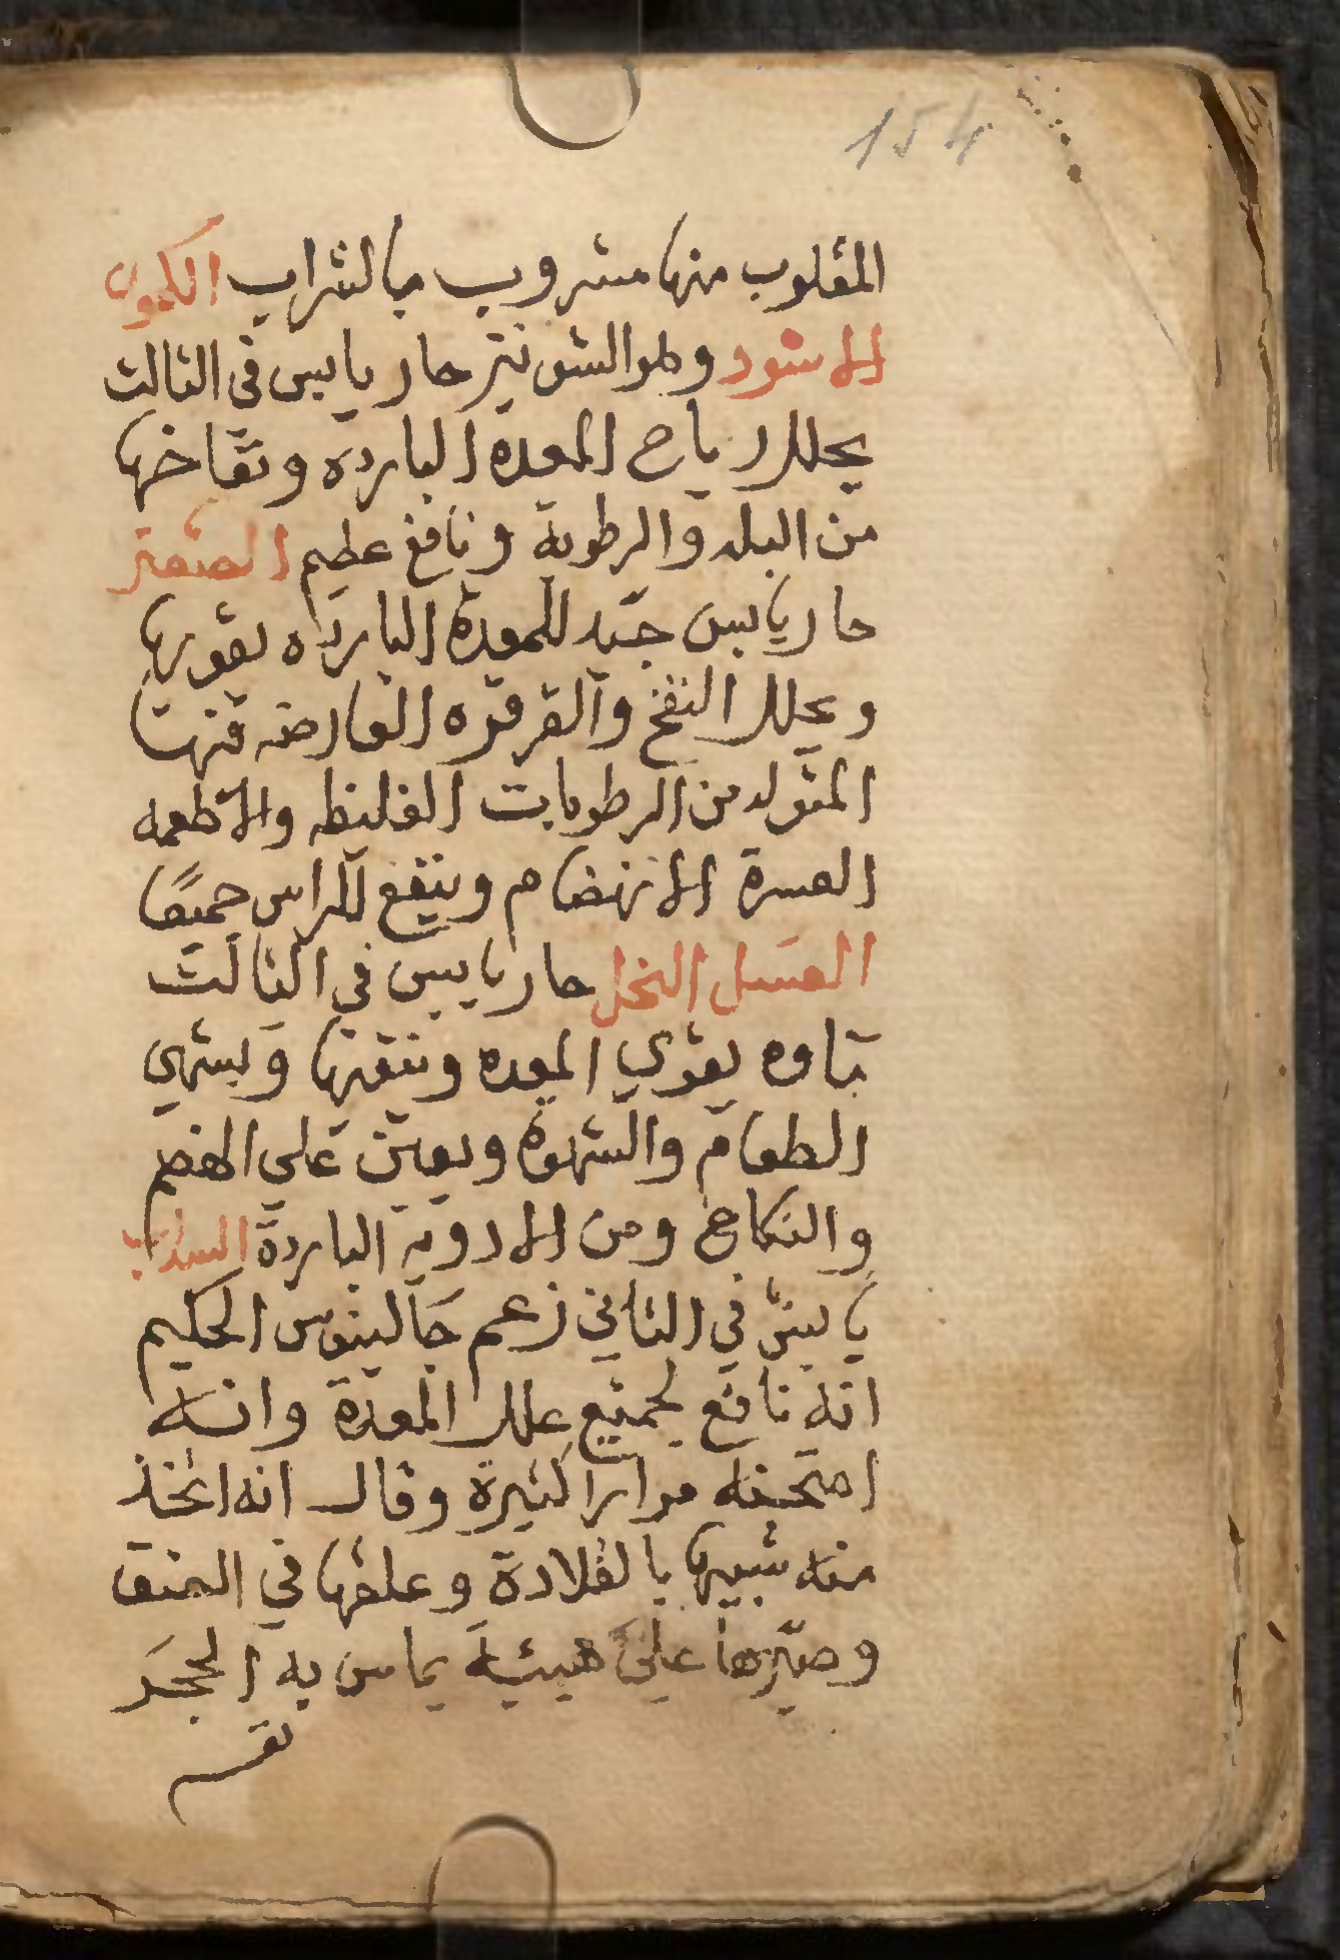 154
المقلوب منها مشروب بالشراب الكمون
الاسود وهو الشونيز حار يابس في الثالث
يحلل رياح المعده البارده ونفاخها
من البله والرطوبة ونافع عظيم الصعتر
حار يابس جيد للمعدة البارده يقويها
ويحلل النفخ والقرقره العارضه فيها
المتولد من الرطوبات الغليظه والاطعمه
العسرة الانهضام وينفع للراس جميعًا
العسل النحل حار يابس في الثالث
تناوه يقوي المعده وينقيها ويشهي
الطعام والشهوة ويعين على الهضم
والنكاح ومن الادوية الباردة
يابس في الثاني زعم جالينوس الحكيم
انه نافع لجميع علل المعدة وانه
امتحنه مرارا كثيرة وقال انه اتخذ
منه شبيها بالقلادة وعلقها في العنق
وصيرها على هيئية يماس به الحجر